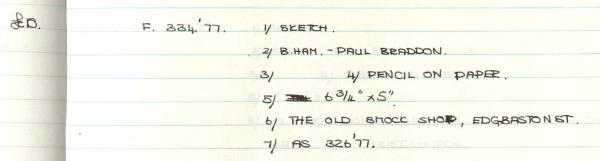 F. 334'77. 1/ SKETCH.
2/ B.HAM. - PAUL BRADDON.
3/ 4/ PENCIL ON PAPER.
5/ 6 3/4" x 5"
6/ THE OLD SMOCK SHOP, EDGBASTON ST.
7/ AS 326'77.